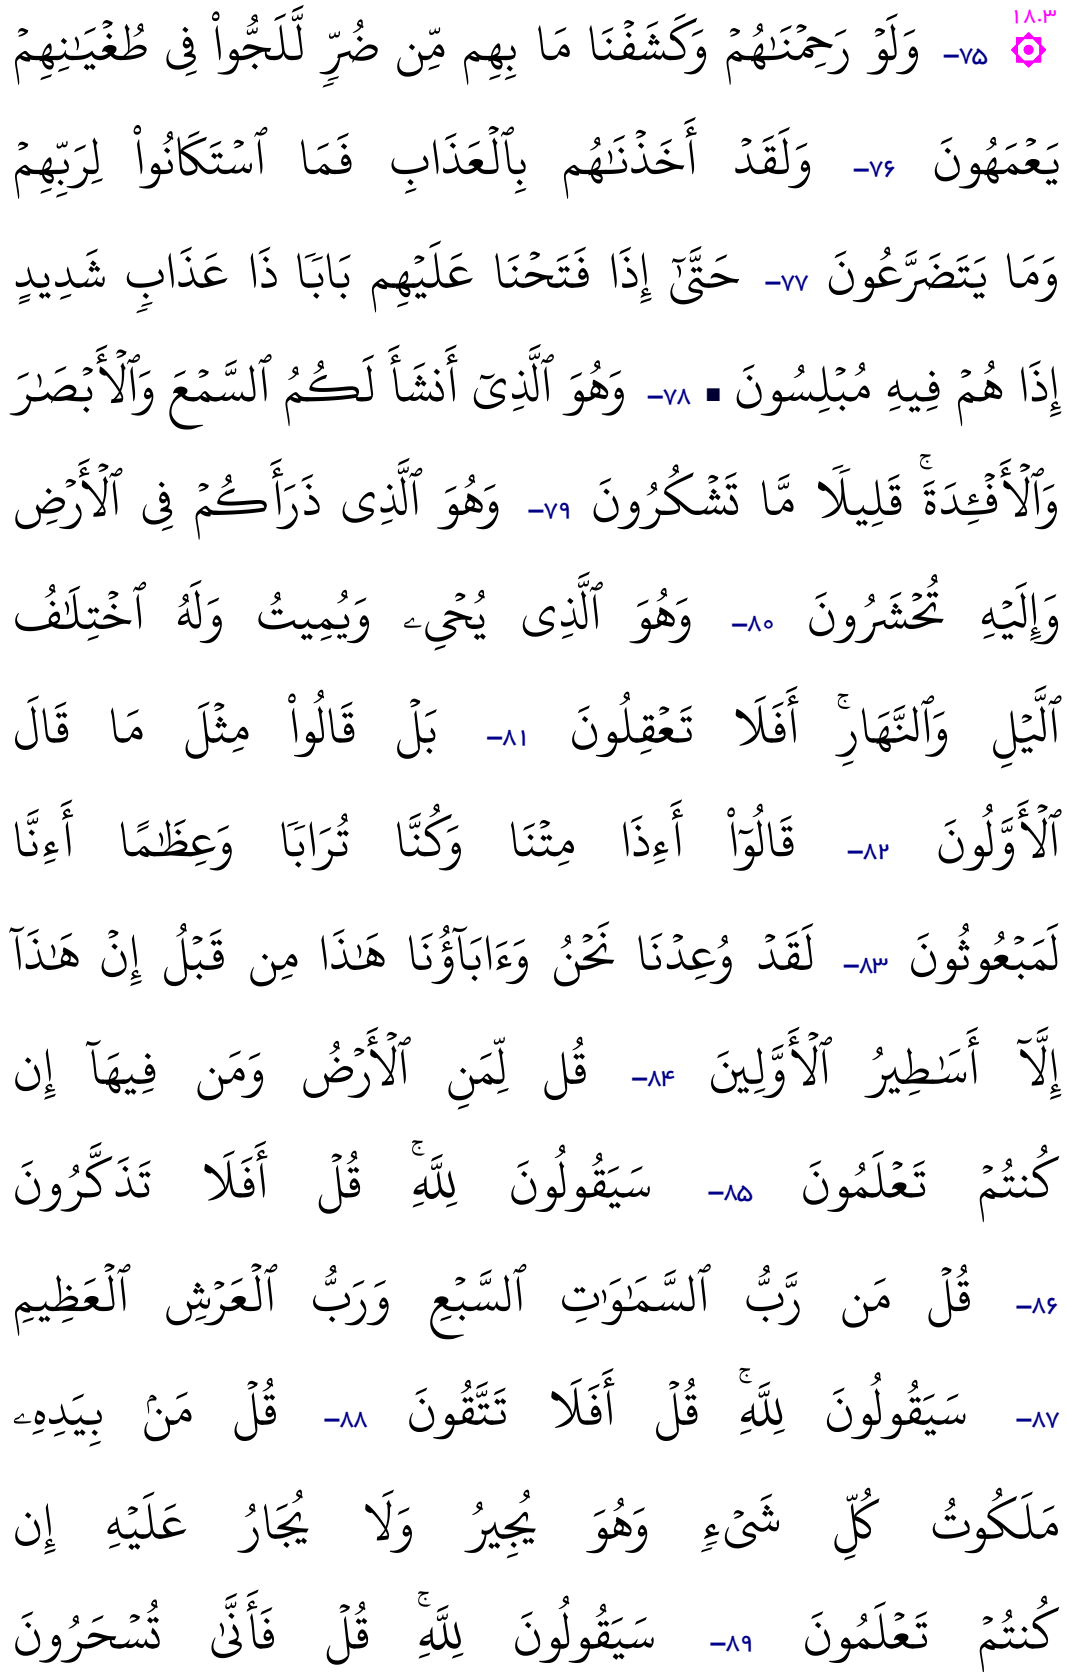 ۱۸.۳
۷۵- وَلَوْ رَحِمْنَـٰهُمْ وَكَشَفْنَا مَا بِهِم مِّن ضُرٍّ لَّلَجُّوا۟ فِى طُغْيَـٰنِهِمْ
يَعْمَهُونَ ۷۶- وَلَقَدْ أَخَذْنَـٰهُم بِٱلْعَذَابِ فَمَا ٱسْتَكَانُوا۟ لِرَبِّهِمْ
وَمَا يَتَضَرَّعُونَ ۷۷- حَتَّىٰٓ إِذَا فَتَحْنَا عَلَيْهِم بَابًا ذَا عَذَابٍ شَدِيدٍ
إِذَا هُمْ فِيهِ مُبْلِسُونَ ▪ ۷۸- وَهُوَ ٱلَّذِىٓ أَنشَأَ لَكُمُ ٱلسَّمْعَ وَٱلْأَبْصَـٰرَ
وَٱلْأَفْـِٔدَةَ ۚ قَلِيلًا مَّا تَشْكُرُونَ ۷۹- وَهُوَ ٱلَّذِى ذَرَأَكُمْ فِى ٱلْأَرْضِ
وَإِلَيْهِ تُحْشَرُونَ ۸۰- وَهُوَ ٱلَّذِى يُحْىِۦ وَيُمِيتُ وَلَهُ ٱخْتِلَـٰفُ
ٱلَّيْلِ وَٱلنَّهَارِ ۚ أَفَلَا تَعْقِلُونَ ۸۱- بَلْ قَالُوا۟ مِثْلَ مَا قَالَ
ٱلْأَوَّلُونَ ۸۲- قَالُوٓا۟ أَءِذَا مِتْنَا وَكُنَّا تُرَابًا وَعِظَـٰمًا أَءِنَّا
لَمَبْعُوثُونَ ۸۳- لَقَدْ وُعِدْنَا نَحْنُ وَءَابَآؤُنَا هَـٰذَا مِن قَبْلُ إِنْ هَـٰذَآ
إِلَّآ أَسَـٰطِيرُ ٱلْأَوَّلِينَ ۸۴- قُل لِّمَنِ ٱلْأَرْضُ وَمَن فِيهَآ إِن
كُنتُمْ تَعْلَمُونَ ۸۵- سَيَقُولُونَ لِلَّهِ ۚ قُلْ أَفَلَا تَذَكَّرُونَ
۸۶- قُلْ مَن رَّبُّ ٱلسَّمَـٰوَٰتِ ٱلسَّبْعِ وَرَبُّ ٱلْعَرْشِ ٱلْعَظِيمِ
۸۷- سَيَقُولُونَ لِلَّهِ ۚ قُلْ أَفَلَا تَتَّقُونَ ۸۸- قُلْ مَنۢ بِيَدِهِۦ
مَلَكُوتُ كُلِّ شَىْءٍ وَهُوَ يُجِيرُ وَلَا يُجَارُ عَلَيْهِ إِن
كُنتُمْ تَعْلَمُونَ ۸۹- سَيَقُولُونَ لِلَّهِ ۚ قُلْ فَأَنَّىٰ تُسْحَرُونَ